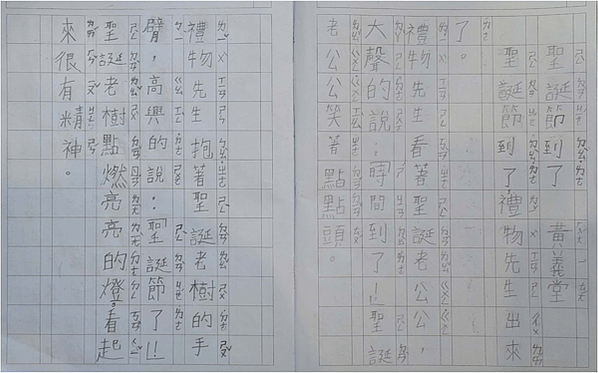 聖誕節到了 黃義堂
聖誕節到了,禮物先生出來
了。
禮物先生看著聖誕老公公,
大聲的說:時間到了!!聖誕
老公公笑著點點頭。
禮物先生抱著聖誕老樹的手
臂,高興的說:聖誕節了!!
聖誕老樹點燃亮亮的燈。看起
來很有精神。